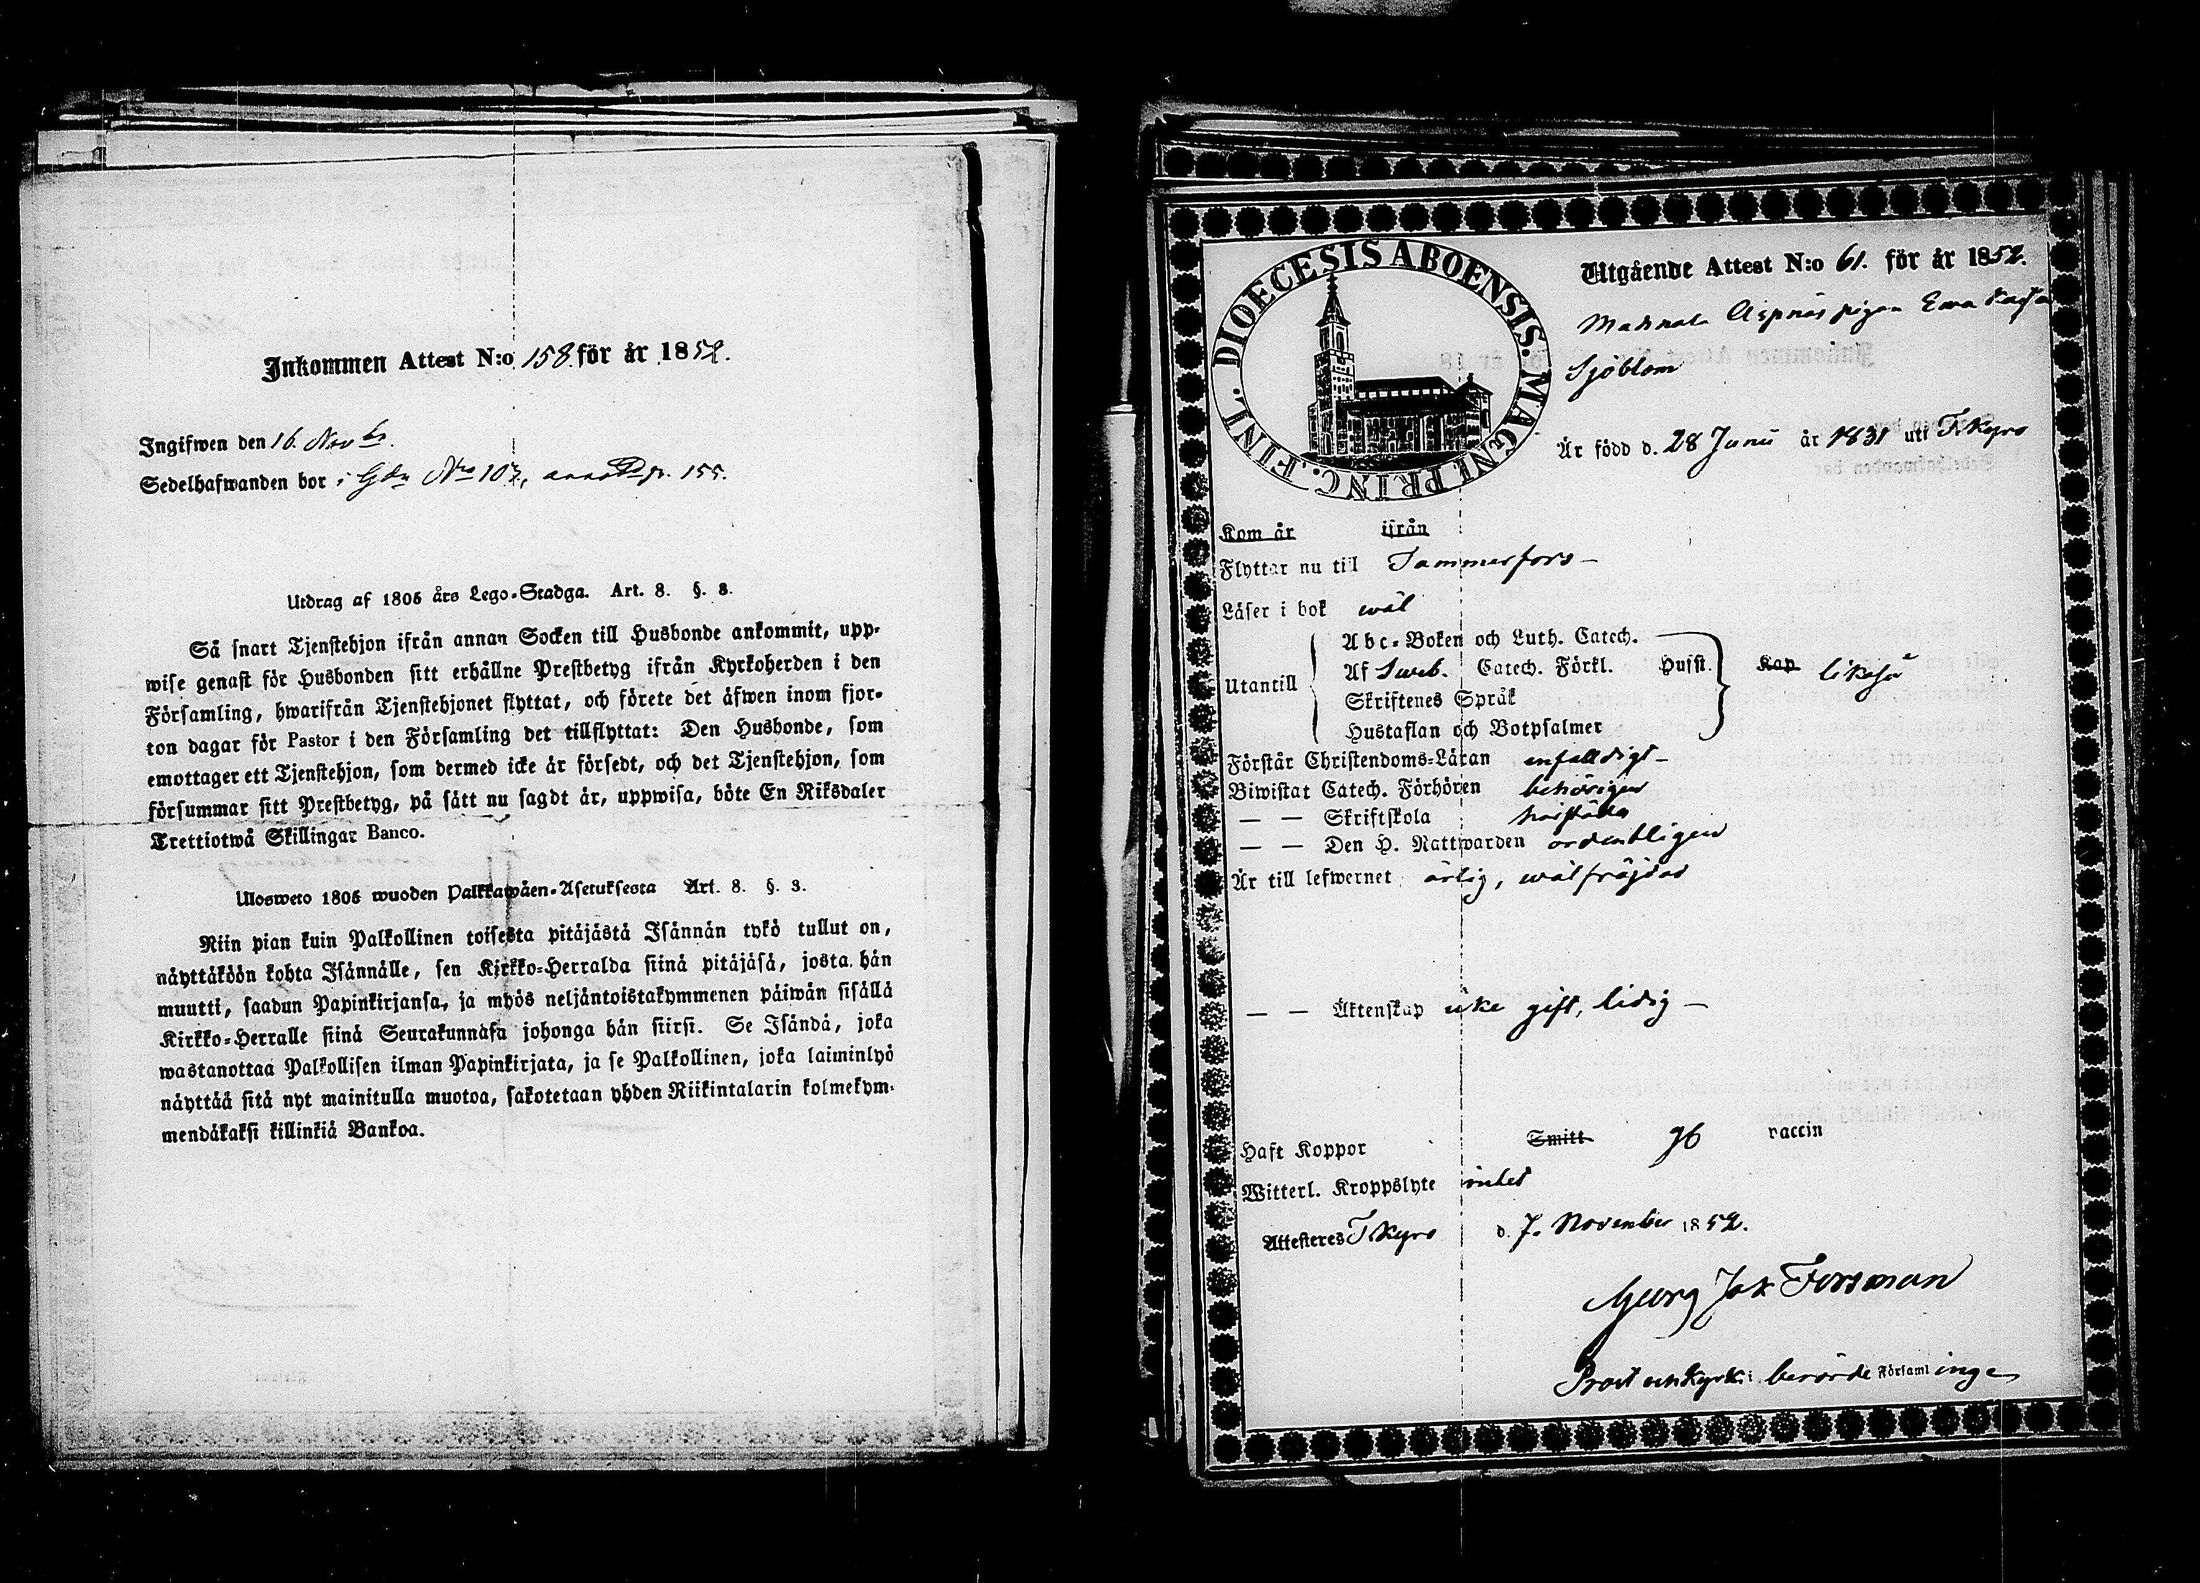 Inkommen Attest N:o 158. för år 1852.
Ingifwen den 16. Nov br.
Sedelhafwanden bor i Gdn No 107, pr. 155.
Utdrag af 1805 års Lego-Stadga. Art. 8. §. 3.
Så snart Tjenstehjon ifrån annan Socken till Husbonde ankommit, upp-
wise genast för Husbonden sitt erhållne Prestbetyg ifrån Kyrkoherden i den
Församling, hwarifrån Tjenstehjonet flyttat, och förete det äfwen inom fjor-
ton dagar för Pastor i den Församling det tillflyttat: Den Husbonde, som
emottager ett Tjenstehjon, som dermed icke är försedt, och det Tjenstehjon, som
försummar sitt Prestbetyg, på sätt nu sagdt är, uppwisa, böte En Riksdaler
Trettiotwå Skillingar Banco.
Ulosweto 1805 wuoden Palkkawäen-Asetuksesta Art. 8. §. 3.
Niin pian kuin Palkollinen toisesta pitäjästä Isännän tykö tullut on,
näyttäköön kohta Isännälle, sen Kirkko-Herralda siinä pitäjäsä, josta hän
muutti, saadun Papinkirjansa, ja myös neljäntoistakymmenen päiwän sisällä
Kirkko-Herralle siinä Seurakunnasa johonga hän siirsi. Se Isändä, joka
wastanottaa Palkollisen ilman Papinkirjata, ja se Palkollinen, joka laiminlyö
näyttää sitä nyt mainitulla muotoa, sakotetaan yhden Riikintalarin kolmekym-
mendäkaksi killinkiä Bankoa.
DIOECESIS ABOENSIS. MAGNI. PRINC. FINL.
Utgående Attest N:o 61. för år 1852.
Mahnala Aspnäs pigan Ewa Kajsa
Sjöblom
Är född d. 28 Junii år 1831 uti T.kyro
Kom år ifrån
Flyttar nu till Tammerfors –
Läser i bok wäl
Utantill
Abc-Boken och Luth. Catech.
Af Sweb. Catech. Förkl. Husst. Kap likaså
Skriftenes Språk
Hustaflan och Botpsalmer
Förstår Christendoms-Läran enfalldigt –
Biwistat Catech. Förhören behörigen
— — Skriftskola
— — Den H. Nattwarden ordentligen
Är till lefwernet ärlig, wälfräjdad
— — Äktenskap icke gift, lidig –
Haft Koppor Smitt gb vaccin
Witterl. Kroppslyte intet
Attesteres T kyro d. 7. November 1852.
Georg Jak Forsman
Prost och Kyrkh. i berörde Församlingen